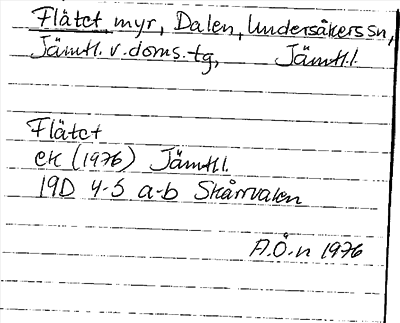 Flätet, myr, Dalen, Undersåkers sn,
Jämtl. v. doms. tg, Jämtl.
Flätet
ek (1976) Jämtl.
19D 4-5 a-b Skårrvalen
A.Ö-n 1976